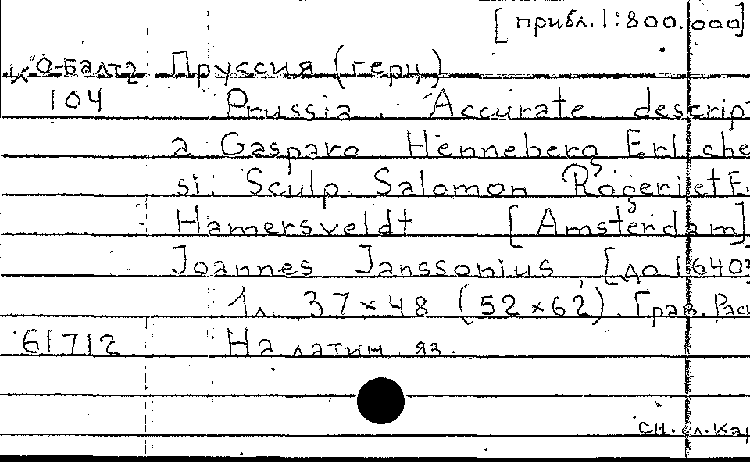 [прибл. 1:800.000]
К О-Балт 2 Пруссия (герц)
104 Prussia. Accurate descrip
a Gasparo Henneberg Erl che
si. Sculp. Salomon Rogeri et E.
Hamersveldt [Amsterdam]
Joannes Janssonius [до 1640]
1 л. 37×48 (52×62). Грав. Рас
61712 На латин. яз.
сл. кар